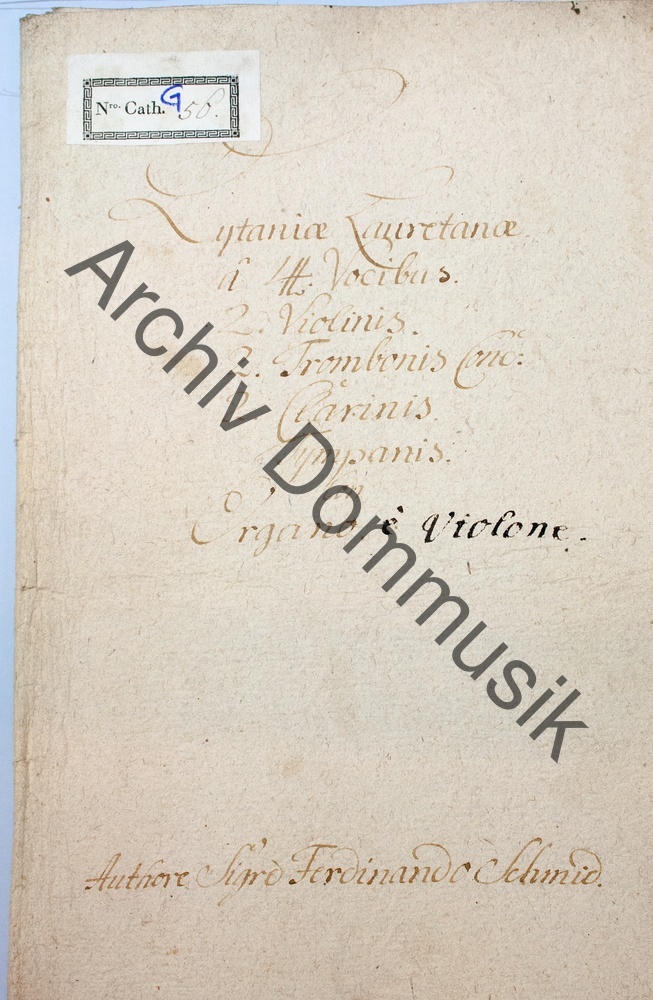 Nro. Cath. G 58.
Lytaniæ Lauretanæ
â 4. Vocibus.
2. Violinis.
2. Trombonis Conc:
2. Clarinis.
Tympanis.
Organo è Violone.
Authore Sigre Ferdinando Schmid.
Archiv Dommusik